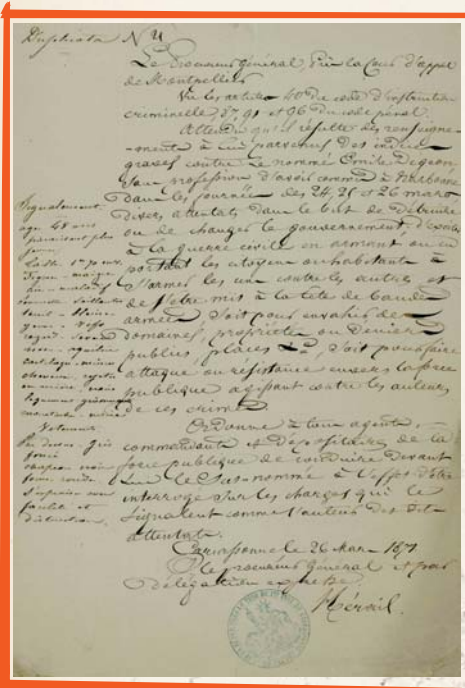 Duplicata N° 4
Le Procureur Général, près la Cour d'appel
de Montpellier
Vu les articles 40 du code d'instruction
criminelle 87, 91 et 96 du code pénal.
Attendu qu'il résulte des renseigne-
-ments à lui parvenus des indices
graves contre Le nommé Emile Digeon
sans profession d'avoir commis à Narbonne
dans les journées des 24, 25 et 26 mars
divers attentats dans le but de détruire
ou de changer le gouvernement, d'exciter
à la guerre civile en armant ou en
portant les citoyens ou habitants à
s'armer les uns contre les autres et
de s'être mis à la tête de bandes
armées soit pour envahir des
domaines, propriétés ou deniers
publics, places &a soit pour faire
attaque ou résistance envers la force
publique agissant contre les auteurs
de ces crimes
Ordonne à tous agents,
commandants et dépositaires de la
force publique de conduire devant
lui le susnommé à l'effet d'être
interrogé sur les charges qui le
signalent comme l'auteur des dits
attentats.
Carcassonne le 26 Mars 1871
P. le procureur Général et par
Délégation expresse
Signalement
age 48 ans
paraissant plus
jeune
taille 1m70 env.
maigre
saillantes
teint
yeux vifs
nez aquilin
cheveux rejetés
en arrière, noirs
légèrement
moustache noire
Vetements
Par dessus gris
foncé
chapeau noir
forme ronde
S'exprime avec
facilité et
distinction.